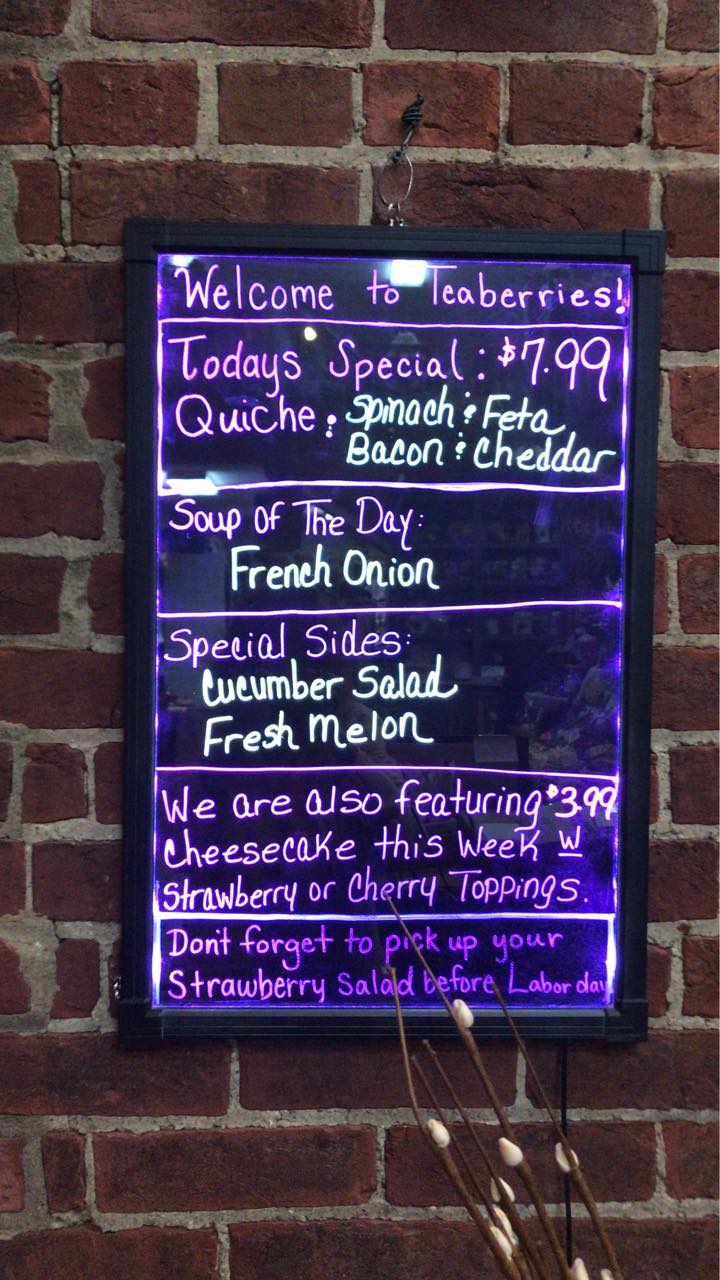 Welcome to Teaberries!
Todays Special: $7.99
Quiche: Spinach & Feta
Bacon & Cheddar
Soup Of The Day:
French Onion
Special Sides:
Cucumber Salad
Fresh Melon
We are also featuring $3.99
Cheesecake this Week W
Strawberry or Cherry Toppings.
Don't forget to pick up your
Strawberry Salad before Labor day